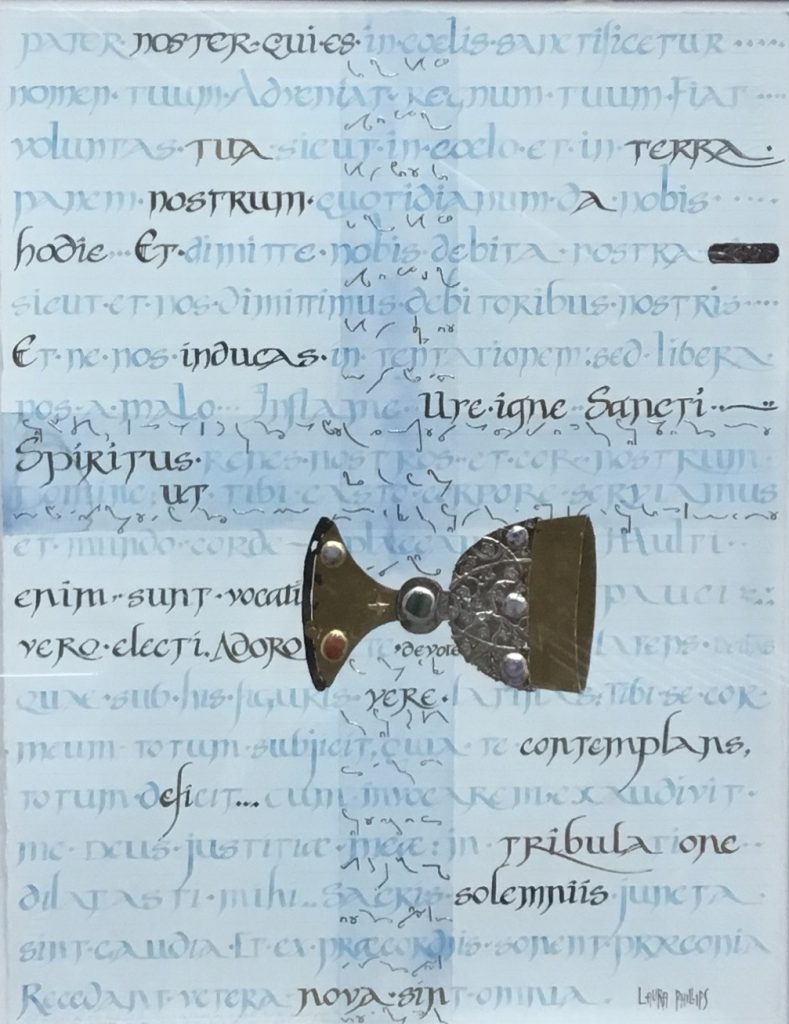 pater·noster·qui·es·in·coelis·sanctificetur·····
nomen·tuum·Adveniat·regnum·tuum·Fiat····
voluntas·tua·sicut·in·coelo·et·in·terra·
panem·nostrum·quotidianum·da·nobis·····
hodie···Et·dimitte·nobis·debita·nostra
sicut·et·nos·dimittimus·debitoribus·nostris····
Et·ne·nos·inducas·in·tentationem:sed·libera·
nos·a·malo... Inflame Ure·igne·Sancti··
Spiritus·renes·nostros·et·cor·nostrum
Domine: ut tibi casto corpore serviamus
et·mundo·corde Multi··
enim··sunt·vocati pauci
vero·electi. Adoro te·devote latens
quae·sub·his·figuris vere·latitas: Tibi·se·cor
meum·totum·subjicit, quia te contemplans,
totum·deficit... cum invocarem·exaudivit·
me·Deus·justitiæ·meæ: in tribulatione
dilatasti·mihi... Sacris solemniis juncta
sint·gaudia·Et·ex·præcordiis·sonent·præconia
Recedant·vetera·nova·sint·omnia·
LAURA PHILLIPS